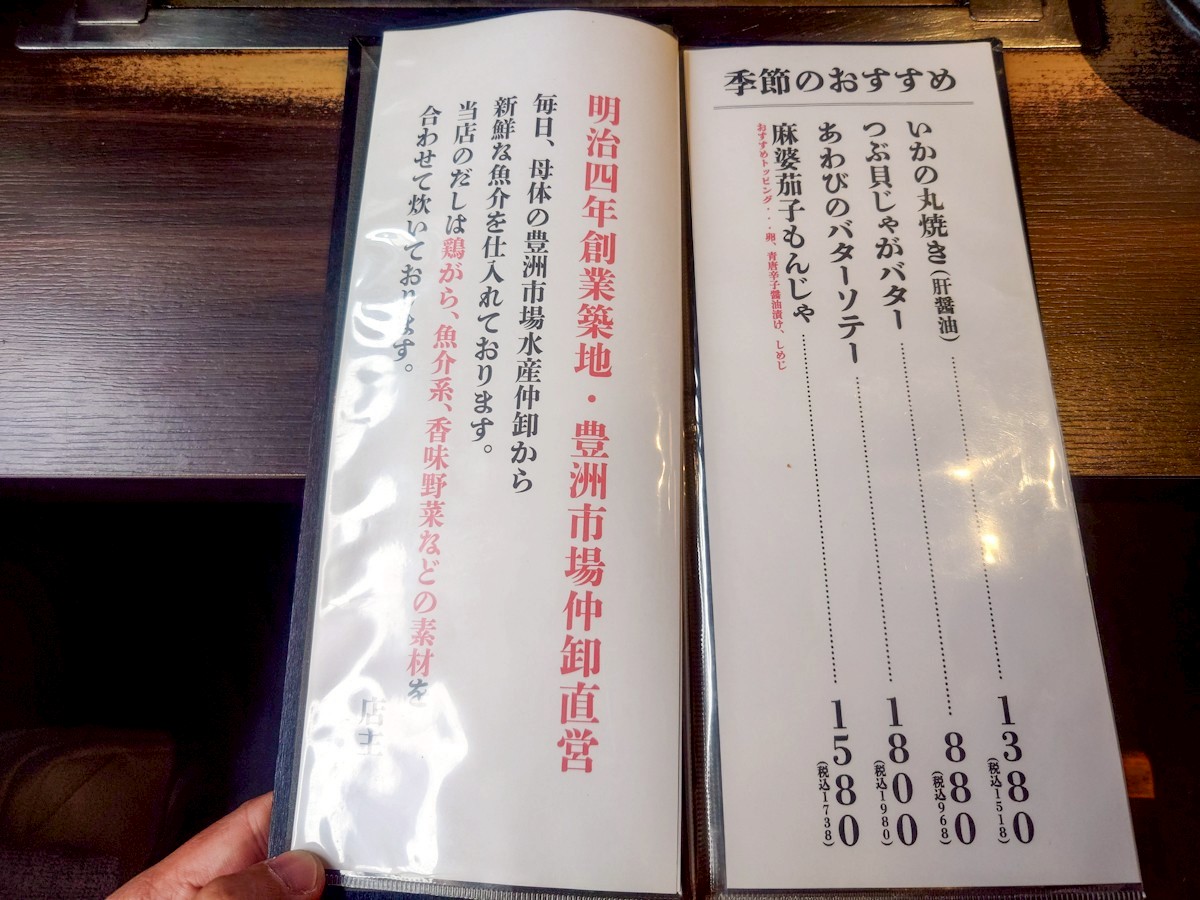 季節のおすすめ
いかの丸焼き(肝醤油)……1380(税込1518)
つぶ貝じゃがバター……880(税込968)
あわびのバターソテー……1800(税込1980)
麻婆茄子もんじゃ……1580(税込1738)
おすすめトッピング・・・卵、青唐辛子醤油漬け、しめじ
明治四年創業築地・豊洲市場仲卸直営
毎日、母体の豊洲市場水産仲卸から
新鮮な魚介を仕入れております。
当店のだしは鶏がら、魚介系、香味野菜などの素材を
合わせて炊いております。
店主